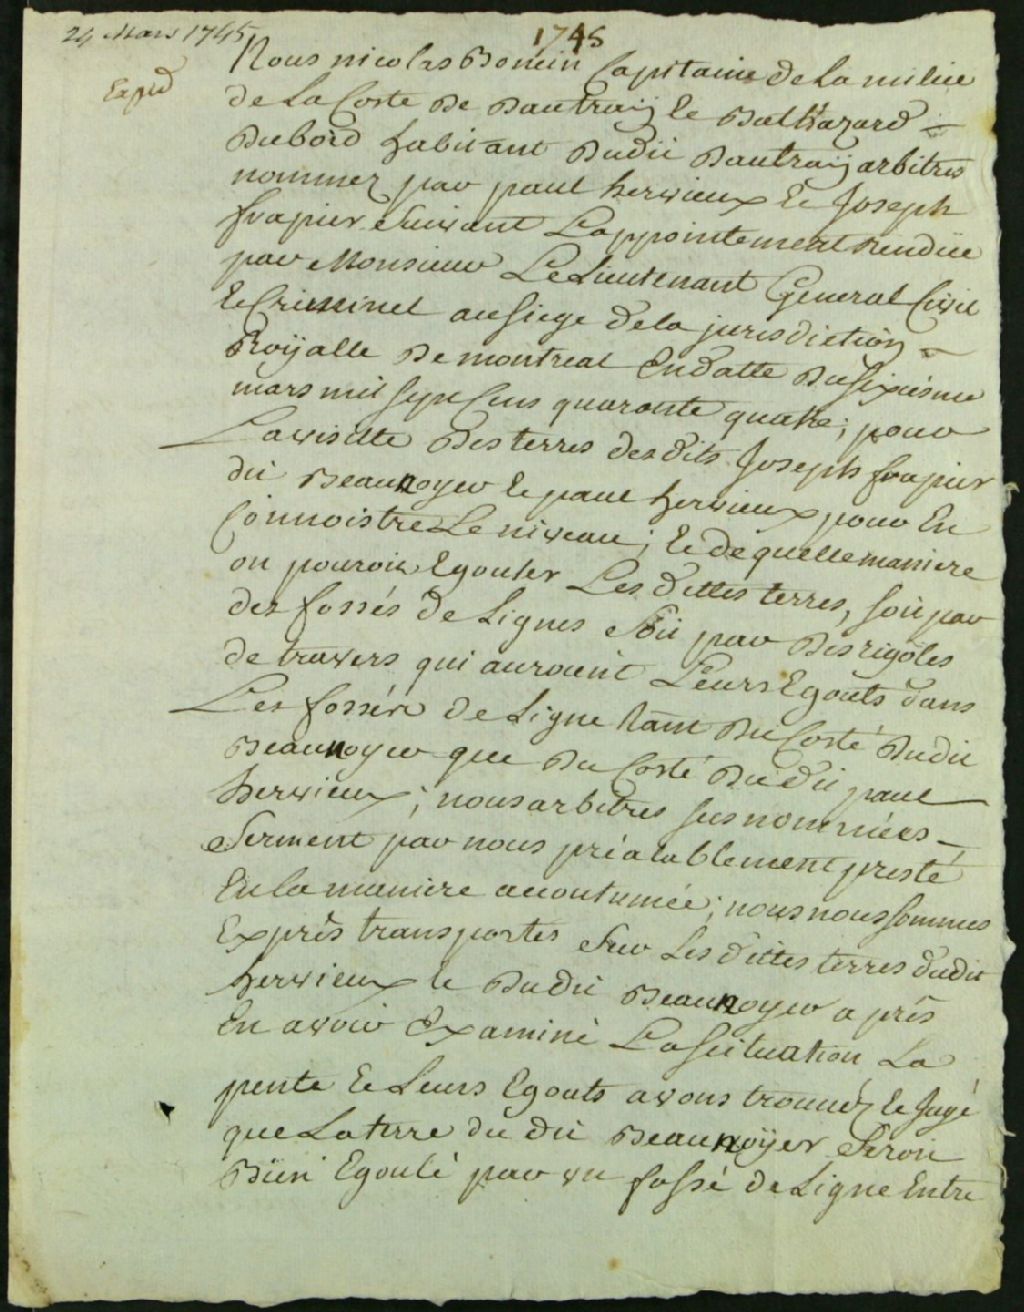 24 Mars 1745
1745
Exped
Nous nicolas Bonnin Capitaine de La milice
de La Coste De Dautraij Et Balthazard
Dubord habitant Dudit Dautraij arbitres
nommez par paul hervieux Et Joseph
frapier Suivant L'appointement Rendüe
par Monsieur Le Lieutenant General Civil
Et Criminel au Siege de la jurisdiction
Roÿalle De montreal En datte Du Sixiesme
mars mil Sept Cens quarante quatre, pour
La visitte Des terres des dits Joseph frapier
dit Beaunoyer Et paul hervieux pour En
Connoistre Le niveau; Et de quelle maniere
on pouroit Egouter Les dittes terres, soit par
des fossés de Lignes Soit par Des rigoles
de travers qui auroient Leurs Egouts dans
Les fossés de Ligne tant Du Costé Dudit
Beaunoyer que Du Costé Dudit paul
hervieux; nous arbitres sus nommées
Serment par nous préalablement presté
En la maniere accoutumée; nous nous sommes
Exprês transportes Sur Les dittes terres dudit
hervieux Et Dudit Beaunoyer aprês
En avoir Examiné La Scituation La
pente Et Leurs Egouts avons trouvéz Et Jugé
que La terre du dit Beaunoÿer Seroit
Bien Egouté par un fossé de Ligne Entre